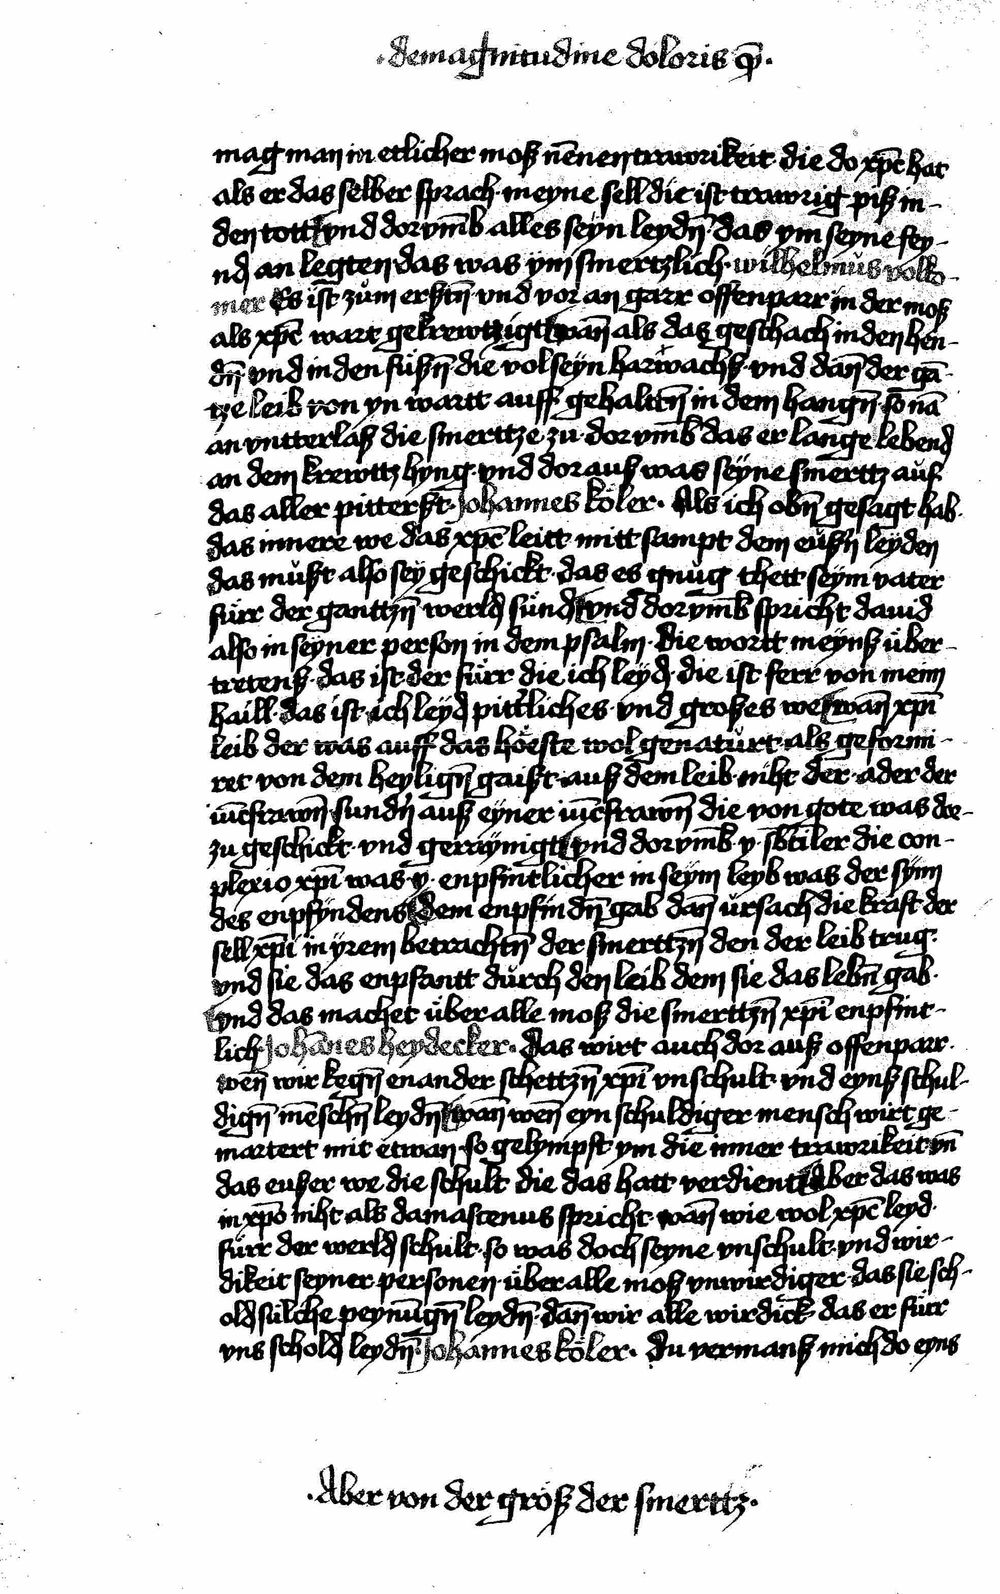 ·de magnitudine doloris xp̄·
mag man in etlicher moß nēnen trawrikeit die do xp̄c hat
als er das selber sprach· meyne sell die ist trawrig piß in-
den tott vnd dorvm̄b alles seyn leydn̄· das ym seyne fey-
nd an legten das was ym smertzlich· wilhelmus volko-
mer Es ist zům ersten̄ vnd vor an garr offenparr in der moß
als xp̄c wart gekrewtzigt wān als das geschach in den hen-
dn̄ vnd in den fůßn̄· die vol seyn harwachß· vnd dan̄ der gā-
tze leib von yn wartt auff gehalttn̄ in dem hangn̄· so nā
an vntterlaß die smerttze zu· dorvm̄b das er lange lebend
an dem krewttz hyng· vnd dorauß was seyne smerttz auf
das aller pitterst· Johannes köler· Als ich obn̄ gesagt hab·
das innere we das xp̄c leitt mitt sampt dem eůßn̄ leyden
das můst also sey geschickt· das es gnůg thett seym vater
fůrr der ganttzn̄ werld sůnd vnd dorvm̄b spricht dauid
also in seyner person in dem psalm· Die wortt meynß über-
tretenß· das ist der fůrr die ich leyd· die ist ferr von mem
haill· das ist· ich leyd pittrliches· vnd großes we wān xp̄i
leib der was auff das höeste wol genatůrt· als geformi-
ret von dem heylign̄ gaist· auß dem leib niht der· ader der
iūcfrawn̄· sundn̄ auß eyner iūcfrawn̄ die von gote was do-
zu geschickt· vnd geraynigt vnd dorvm̄b y· sb̄tiler die con-
plexio xp̄i was· y· enpfintlicher in seym leyb was der synn
des enpfyndens Dem enpfindn̄ gab dan̄ ůrsach die kraft der
sell xp̄i in yrem betrachtn̄ der smerttzn̄ den der leib trug·
vnd sie das enpfantt důrch den leib dem sie das lebn̄ gab·
vnd das machet über alle moß die smerttzn̄ xp̄i enpfint-
lich Johānes heydecker· Das wirt auch dor auß offenparr·
wen̄ wir kegn̄ enander schettzn̄ xp̄i vnschult· vnd eynß schul-
dign̄ mēschn̄ leydn̄ wān wen̄ eyn schuldiger mensch wirt ge-
martert mit etwan· so gelympft ym die inner trawrikeit vn̄
das eußer we die schult die das hatt verdient Aber das was
in xp̄o niht als damascenus spricht· wān wie wol xp̄c leyd·
fůrr der werld schult· so was doch seyne vnschult· vnd wir-
dikeit seyner personen· über alle moß vnwirdiger das sie sch-
old sůlche peynūgn̄ leydn̄· dan̄ wir alle wirdick das er fůrr
vns schold leydn̄· Johannes köler· Du vermanß mich do eyns
·Aber von der größ der smerttz·